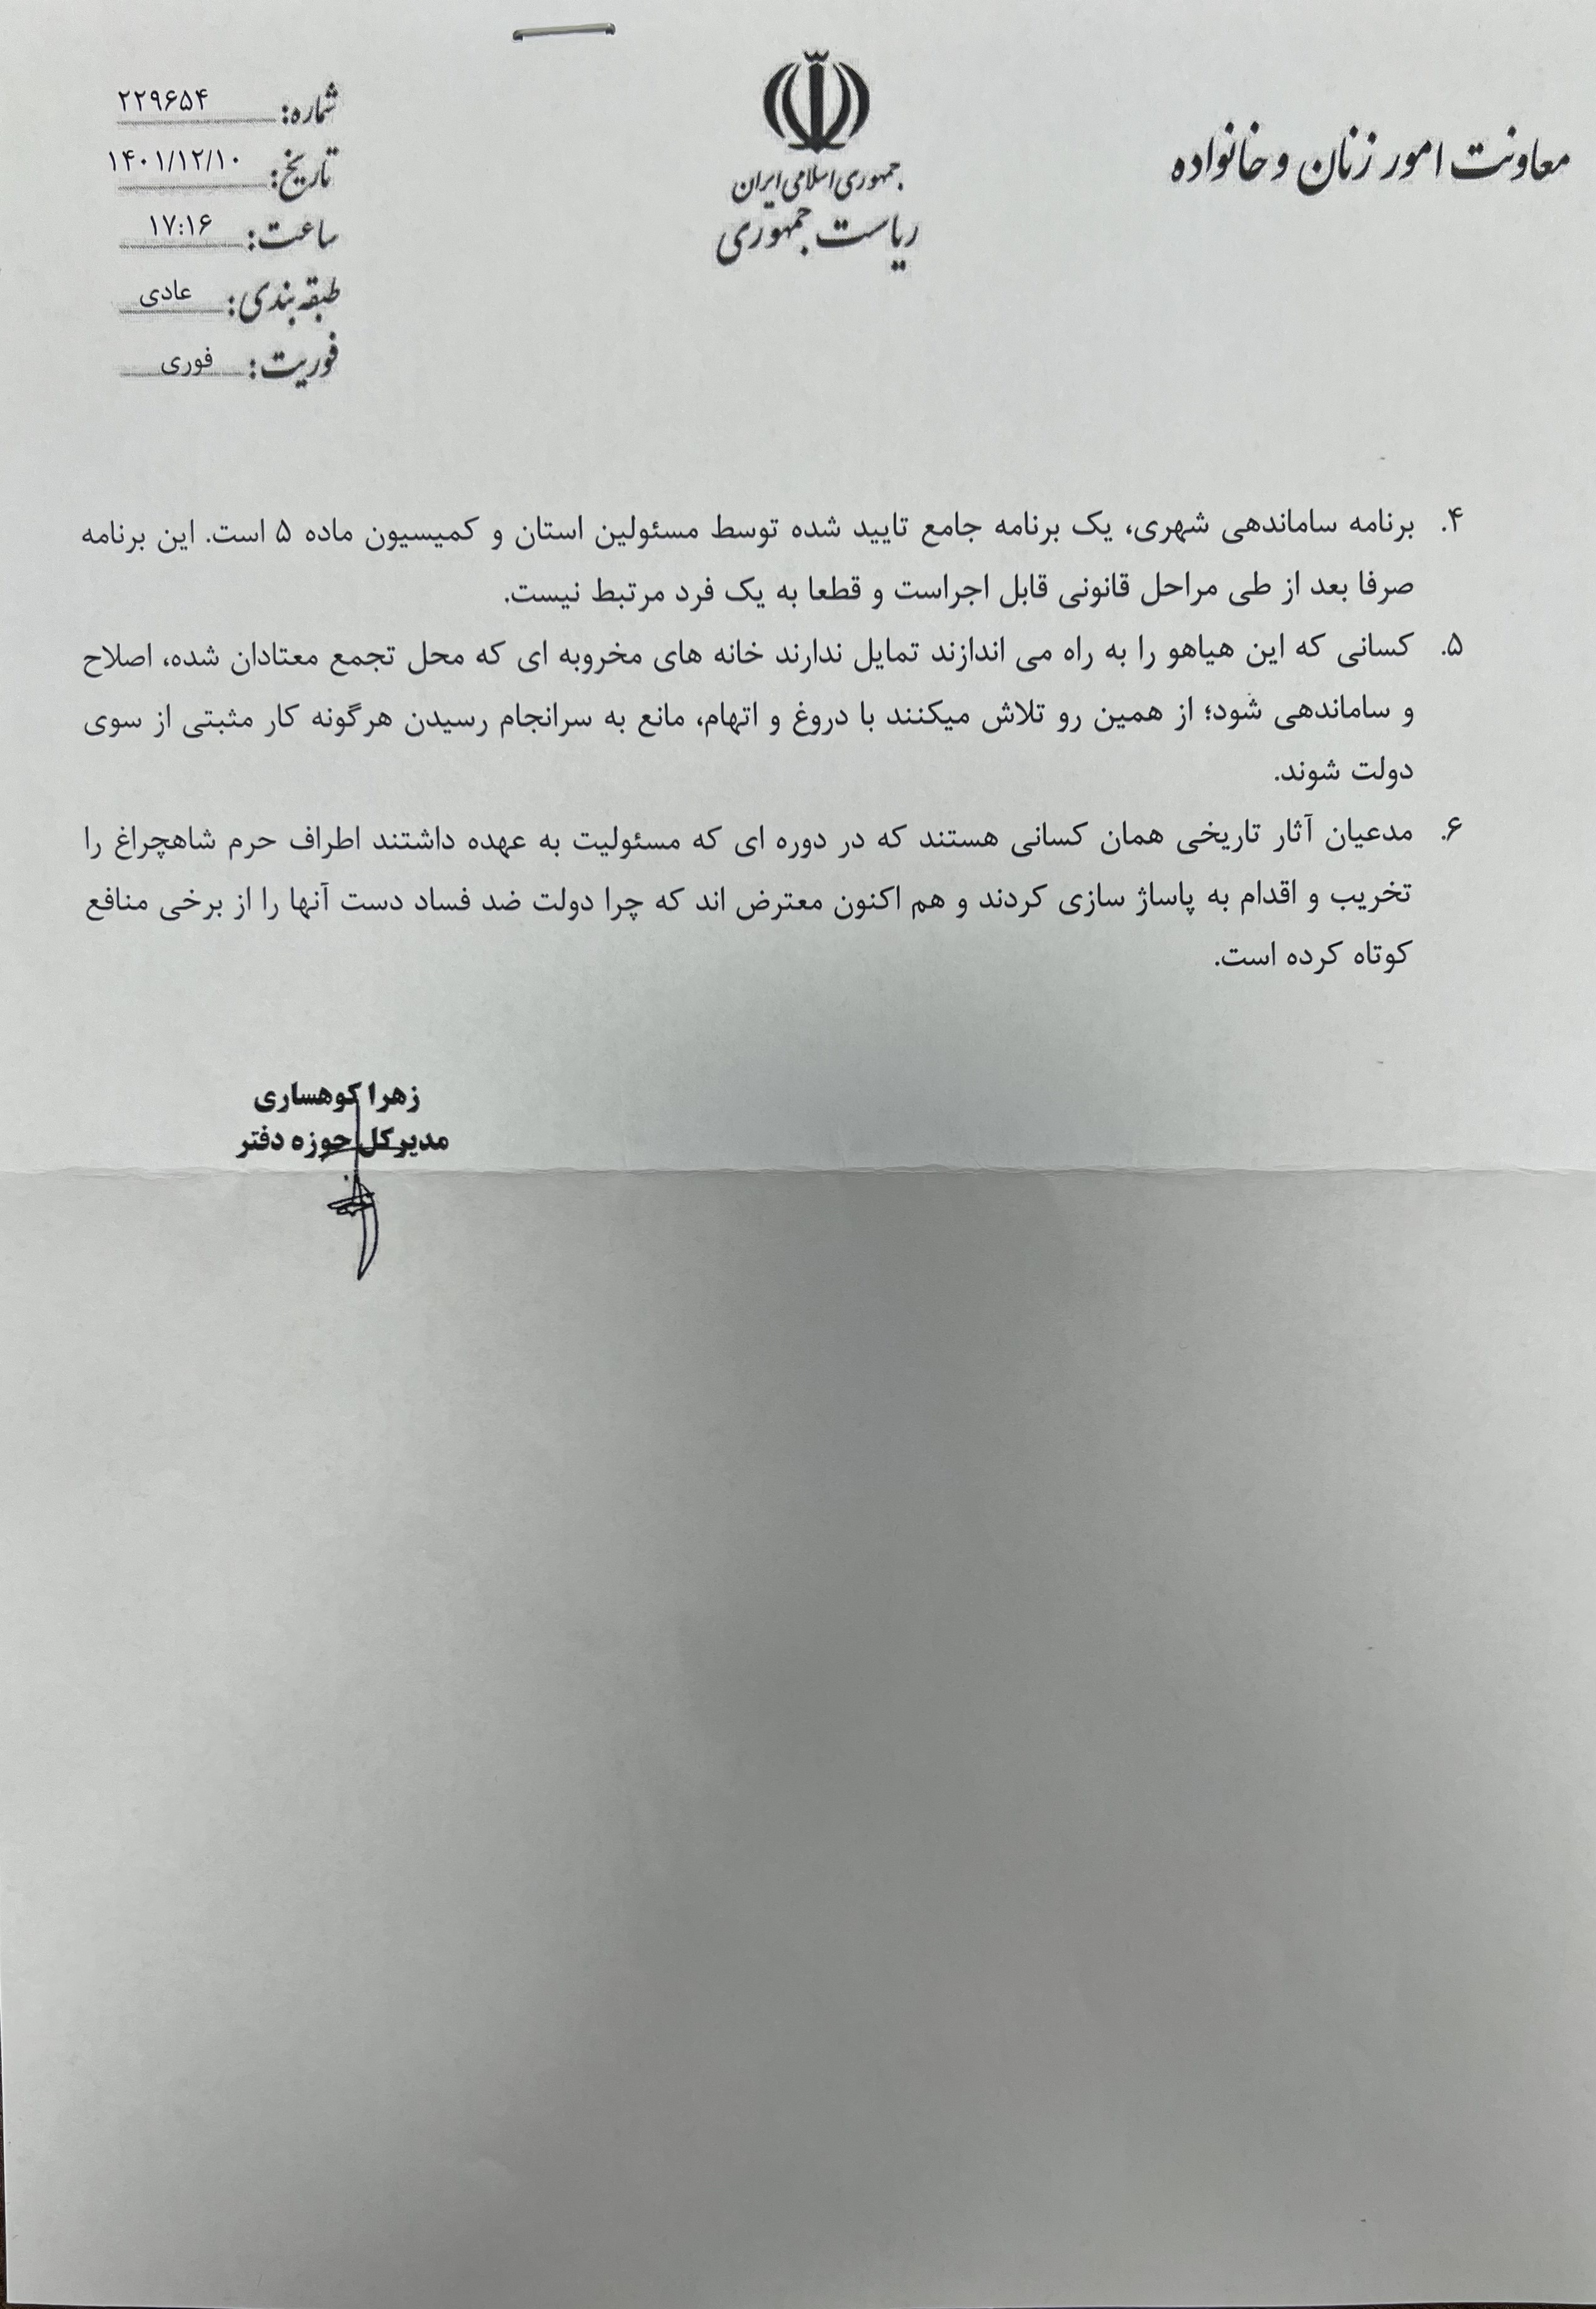 معاونت امور زنان و خانواده
جمهوری اسلامی ایران
ریاست جمهوری
شماره: ۲۲۹۶۵۴
تاریخ: ۱۴۰۱/۱۲/۱۰
ساعت: ۱۷:۱۶
طبقه بندی: عادی
فوریت: فوری
۴. برنامه ساماندهی شهری، یک برنامه جامع تایید شده توسط مسئولین استان و کمیسیون ماده ۵ است. این برنامه
صرفا بعد از طی مراحل قانونی قابل اجراست و قطعا به یک فرد مرتبط نیست.
۵. کسانی که این هیاهو را به راه می اندازند تمایل ندارند خانه های مخروبه ای که محل تجمع معتادان شده، اصلاح
و ساماندهی شود؛ از همین رو تلاش میکنند با دروغ و اتهام، مانع به سرانجام رسیدن هرگونه کار مثبتی از سوی
دولت شوند.
۶. مدعیان آثار تاریخی همان کسانی هستند که در دوره ای که مسئولیت به عهده داشتند اطراف حرم شاهچراغ را
تخریب و اقدام به پاساژ سازی کردند و هم اکنون معترض اند که چرا دولت ضد فساد دست آنها را از برخی منافع
کوتاه کرده است.
زهرا کوهساری
مدیرکل حوزه دفتر